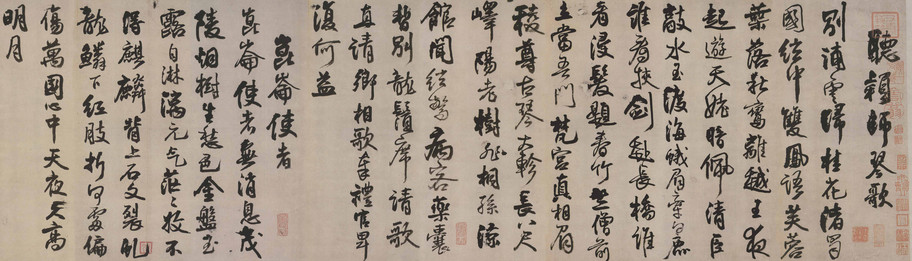 聽穎師琴歌
別浦雲歸桂花渚蜀
國絃中雙鳳語芙蓉
葉落秋鸞離越王夜
起遊天姥暗佩清臣
敲水玉渡海蛾眉牽白鹿
誰看挾劍赴長橋誰
看浸髮題春竹竺僧前
立當吾門梵宮真相眉
稜尊古琴大軫長八尺
嶧陽老樹非桐孫涼
館聞絃驚病客藥囊
暫別龍鬚席請歌
直請卿相歌奉禮官卑
復何益
崑崙使者
崑崙使者無消息茂
陵烟樹生愁色金盤玉
露自淋漓元氣茫茫收不
得麒麟背上石文裂虬
龍鱗下紅肢折何處偏
傷萬國心中天夜久高
明月